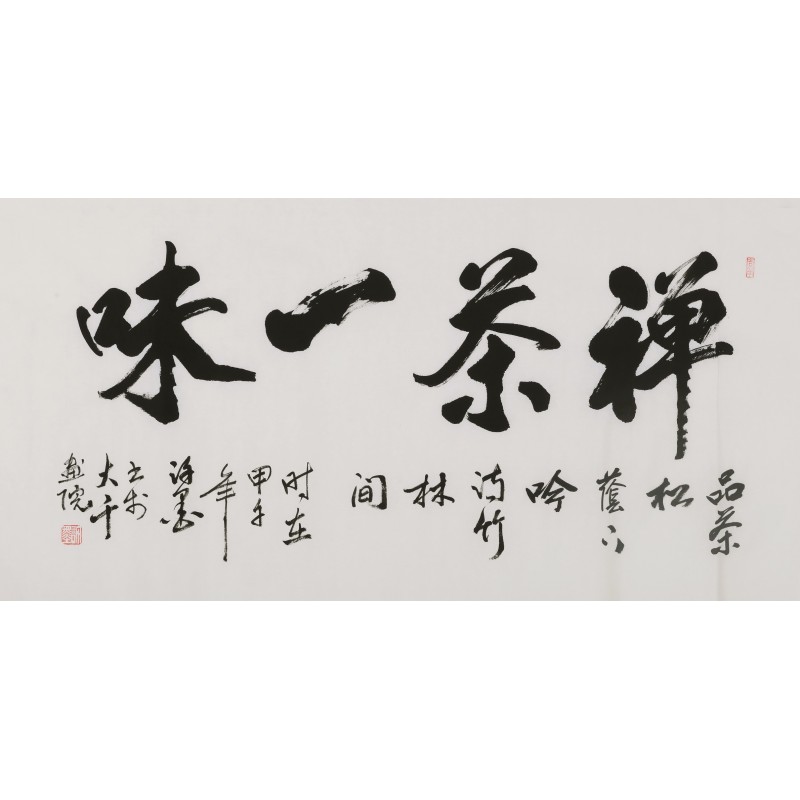 禅茶一味
品茶
松
荫下
吟
诗竹
林
间
时在
甲午
年
许墨
书于
大千
画院